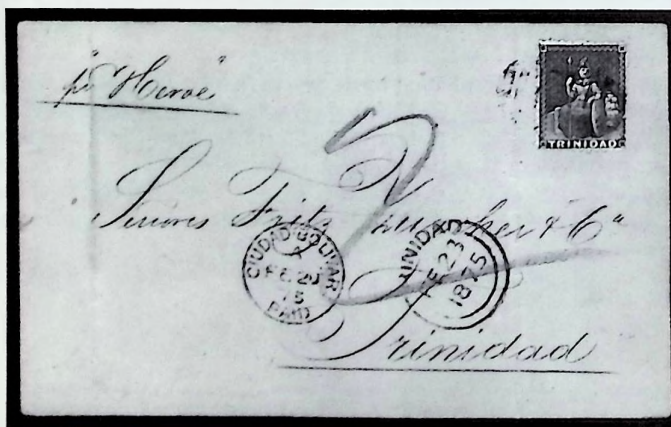 p "Heroe"
TRINIDAD
Señores Fritz & Cª
CIUDAD-BOLIVAR
FE 20
75
PAID
TRINIDAD
FE 23
1875
Trinidad